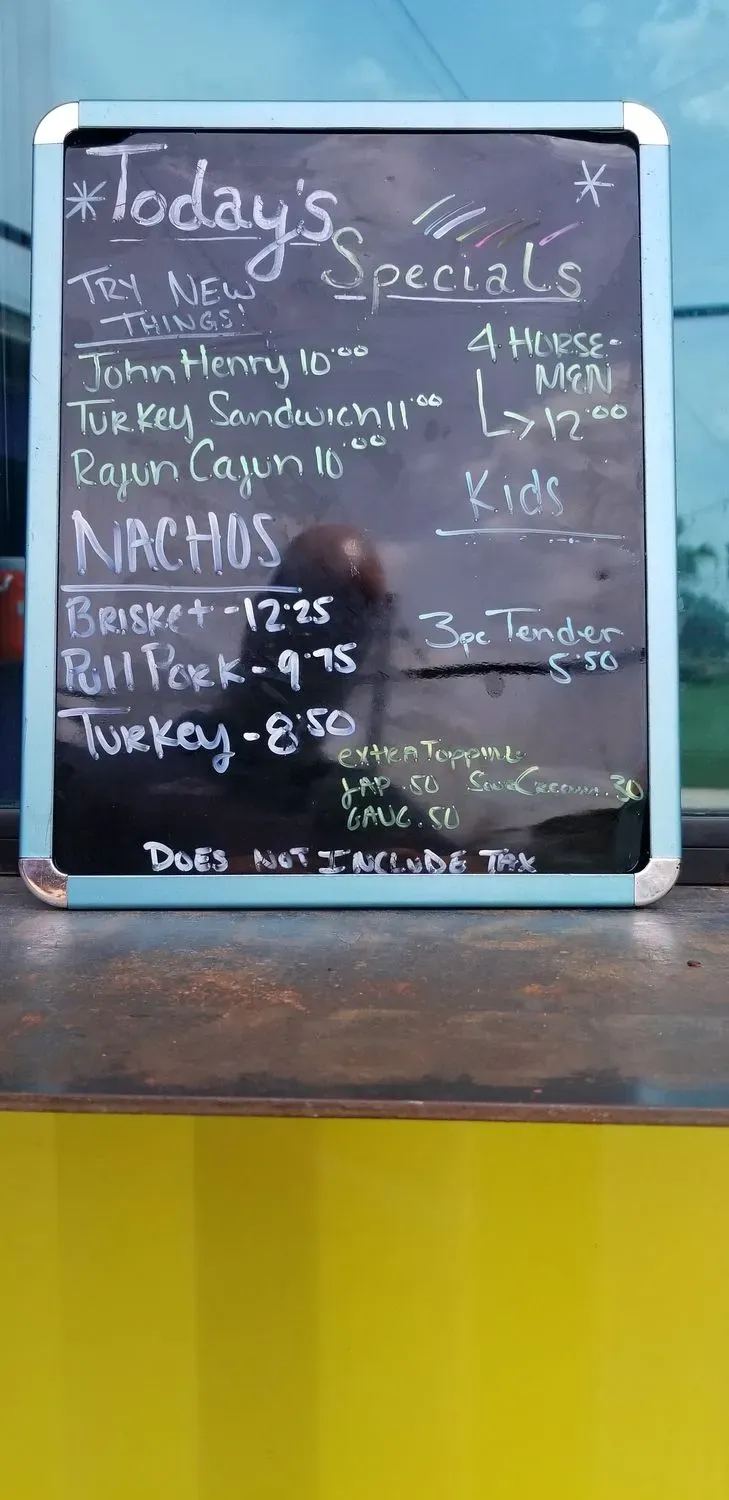 * Today's *
Specials
TRY NEW
THINGS!
John Henry 10.00
Turkey Sandwich 11.00
Rajun Cajun 10.00
4 HORSE-
MEN
12.00
Kids
NACHOS
Brisket - 12.25
Pull Pork - 9.75
Turkey - 8.50
3pc Tender
5.50
extra Topping
JAP .50 Sour Cream .30
GAUC .50
DOES NOT INCLUDE TAX